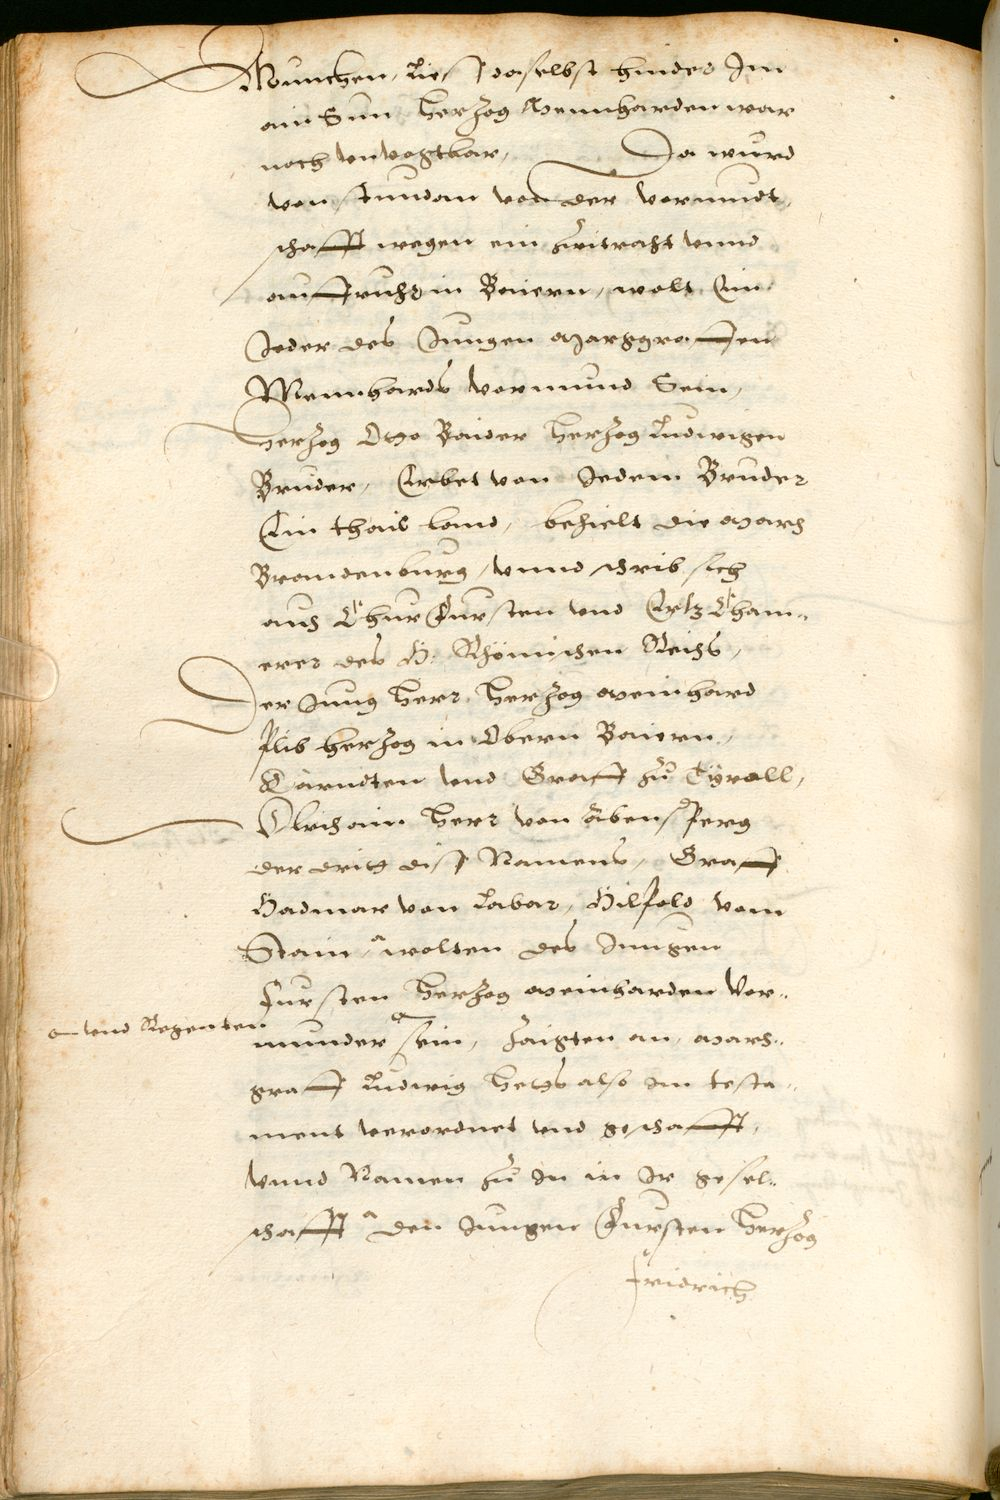 München, Liess daselbst hinder Im
ain Sun Herzog Meinharden war
noch vnvogtbar, Da wurd
von stundan von der vormundt,
schafft wegen ein zwitracht vnnd
auffruhr in Baiern, wolt Ein
Jeder des Jungen Marggraffen
Meinhards vormund Sein,
Herzog Otho Baider Herzog Ludwigen
Bruder, Erbet von Jedem Bruder
Ein thail Land, behielt die March
Brandenburg, vnnd schrib sich
auch ChurFursten vnd ErtzCham¬
erer des H. Rhömischen Reichs,
Der Jung Herr Herzog Meinhard
plib Herzog in Obern Baiern,
Kärndten vnd Graff zu Tyroll,
Ulrich ain Herr von Abensperg
der drith diss Namens, Graff
Hadmar von Labar, Hilpold vom
Stain, wolten des Jungen
Fursten Herzog Meinharden Vor¬
munder sein, zaigten an, March¬
vnd Regenten
graff Ludwig Heths also im testa¬
ment verordnet vnd geschafft,
vnnd Namen zu In in Ir gesel¬
schafft den Jungen Fursten Herzog
Fridrich